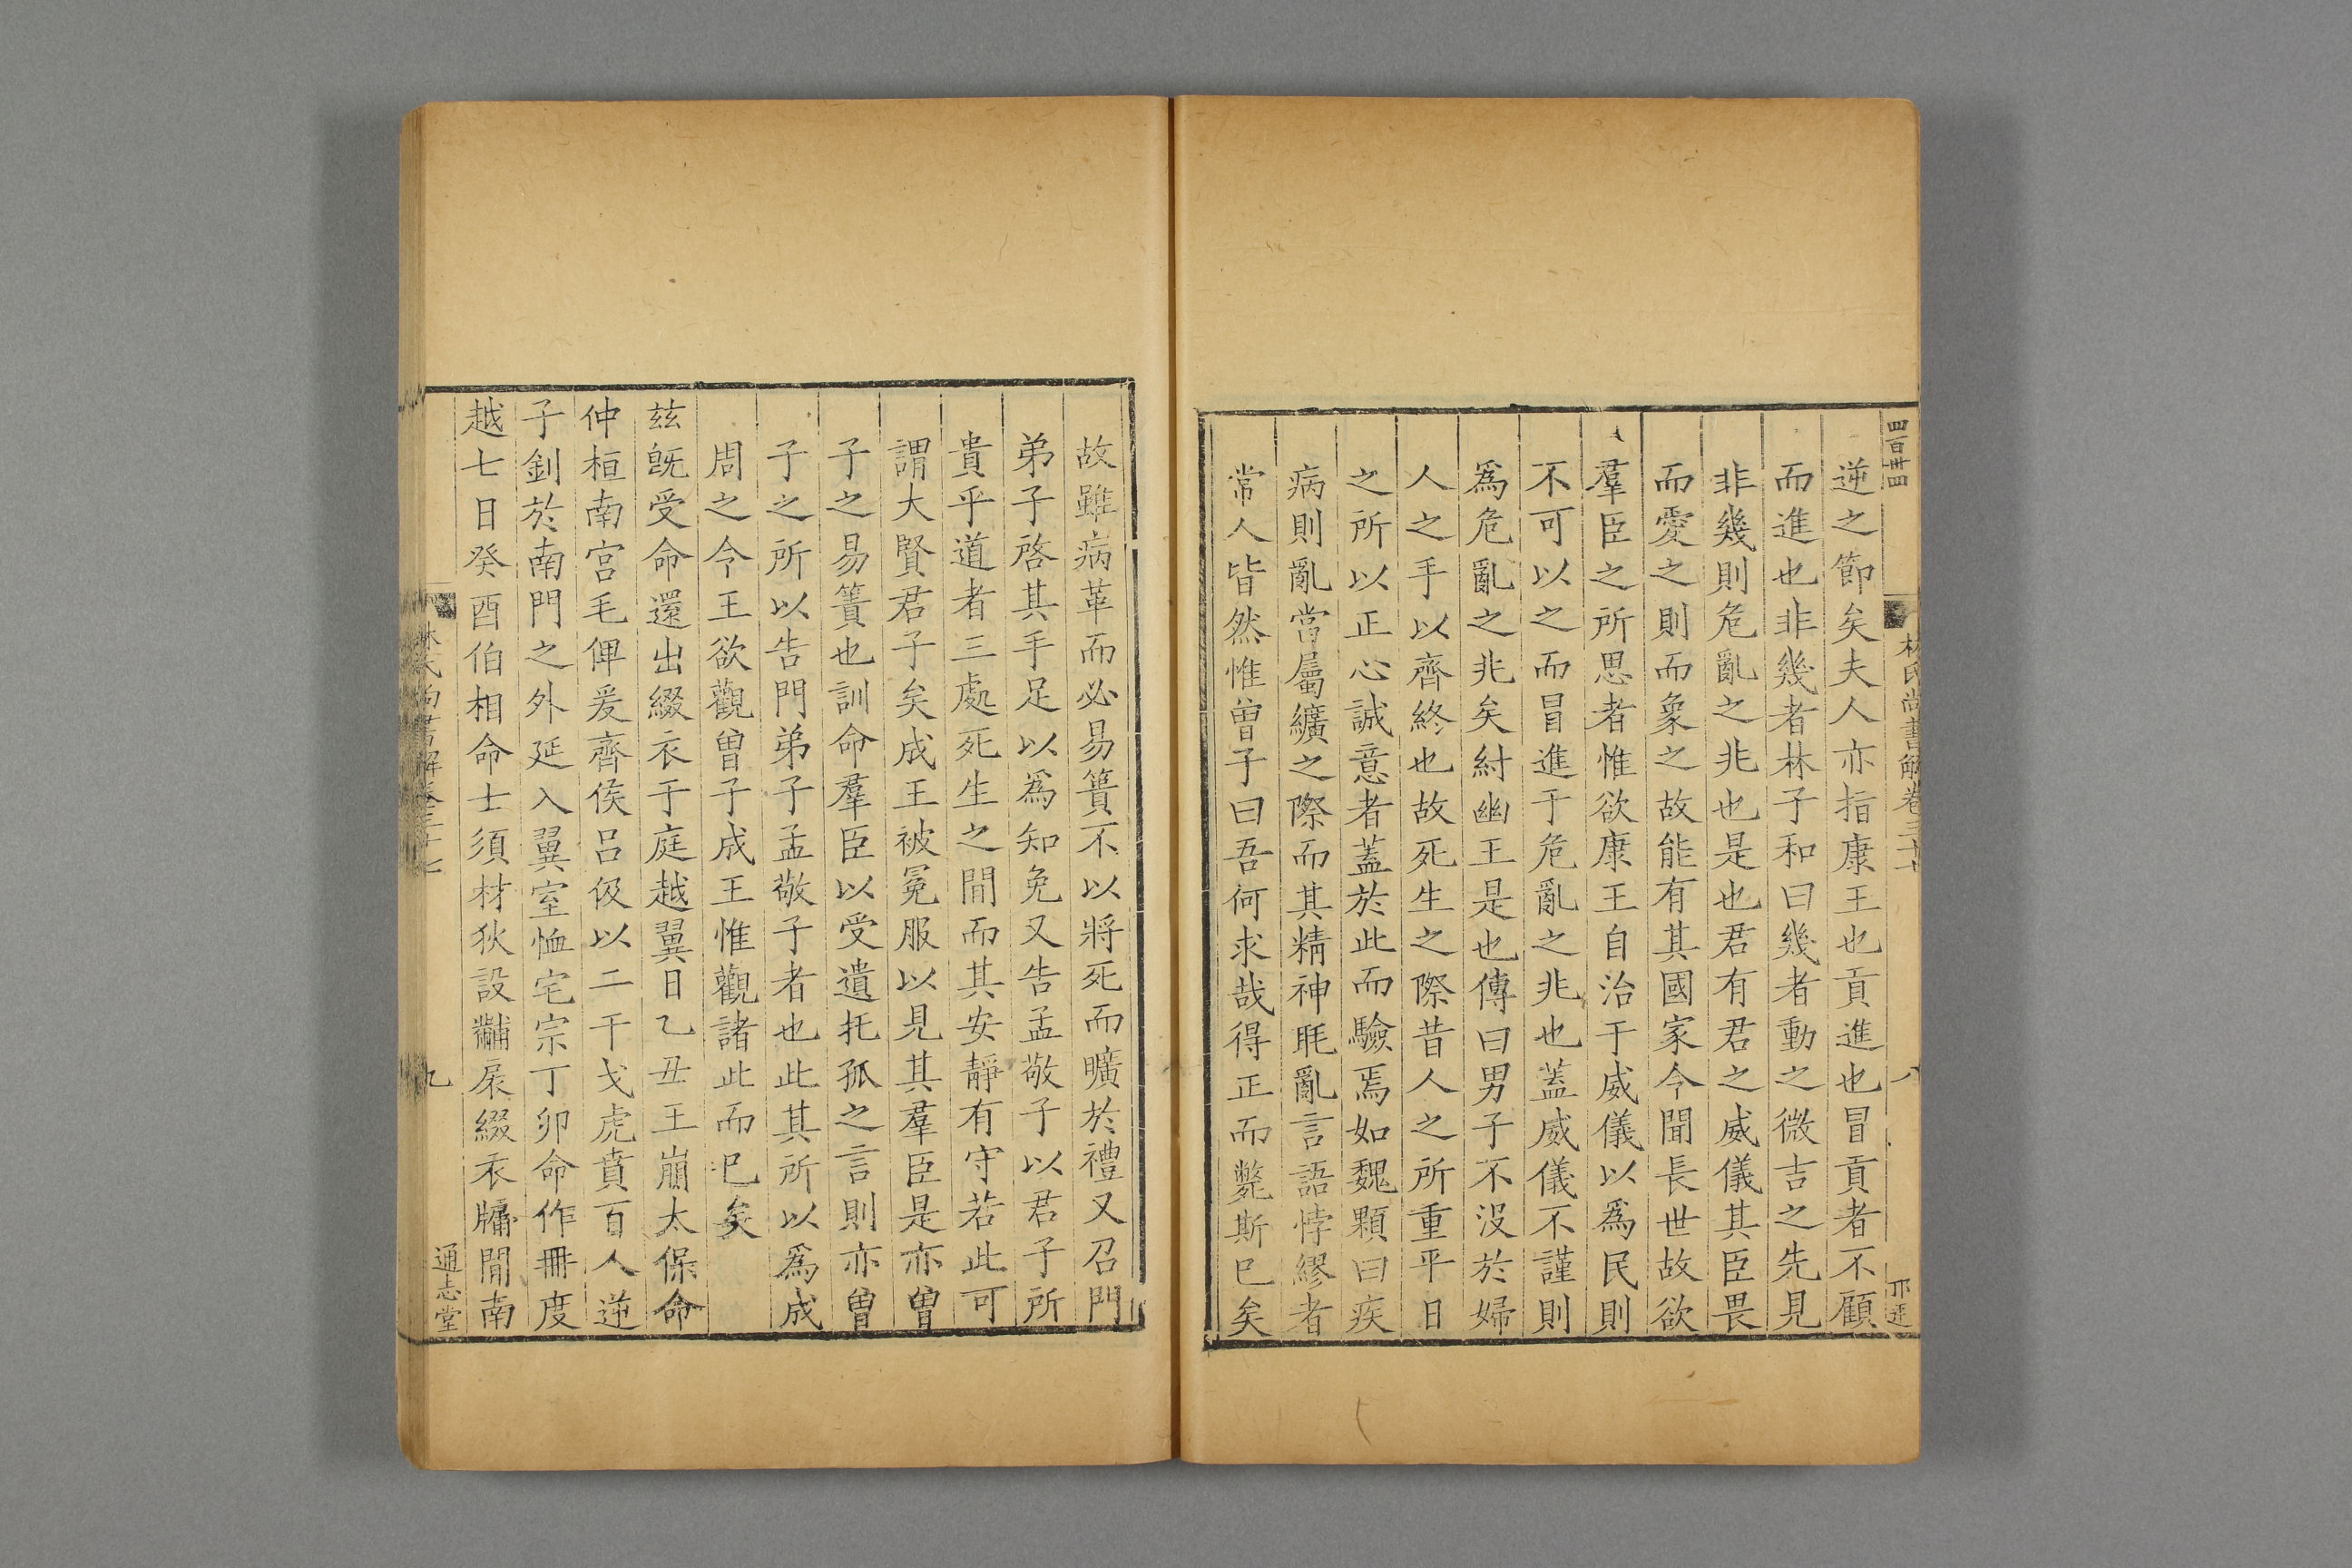 四百卅四
林氏尚書解卷三十七
八
邛運
逆之節矣夫人亦指康王也貢進也冒貢者不顧
而進也非幾者林子和曰幾者動之微吉之先見
非幾則危亂之兆也是也君有君之威儀其臣畏
而愛之則而象之故能有其國家令聞長世故欲
羣臣之所思者惟欲康王自治于威儀以爲民則
不可以之而冒進于危亂之兆也蓋威儀不謹則
爲危亂之兆矣紂幽王是也傳曰男子不沒於婦
人之手以齊終也故死生之際昔人之所重平日
之所以正心誠意者蓋於此而驗焉如魏顆曰疾
病則亂當屬纊之際而其精神眊亂言語悖繆者
常人皆然惟曾子曰吾何求哉得正而斃斯已矣
故雖病革而必易簀不以將死而曠於禮又召門
弟子啓其手足以爲知免又告孟敬子以君子所
貴乎道者三處死生之間而其安靜有守若此可
謂大賢君子矣成王被冕服以見其羣臣是亦曾
子之易簀也訓命羣臣以受遺托孤之言則亦曾
子之所以告門弟子孟敬子者也此其所以爲成
周之令王欲觀曾子成王惟觀諸此而已矣
茲旣受命還出綴衣于庭越翼日乙丑王崩太保命
仲桓南宮毛俾爰齊侯呂伋以二干戈虎賁百人逆
子釗於南門之外延入翼室恤宅宗丁卯命作冊度
越七日癸酉伯相命士須材狄設黼扆綴衣牖間南
林氏尚書解卷三十七
九
通志堂